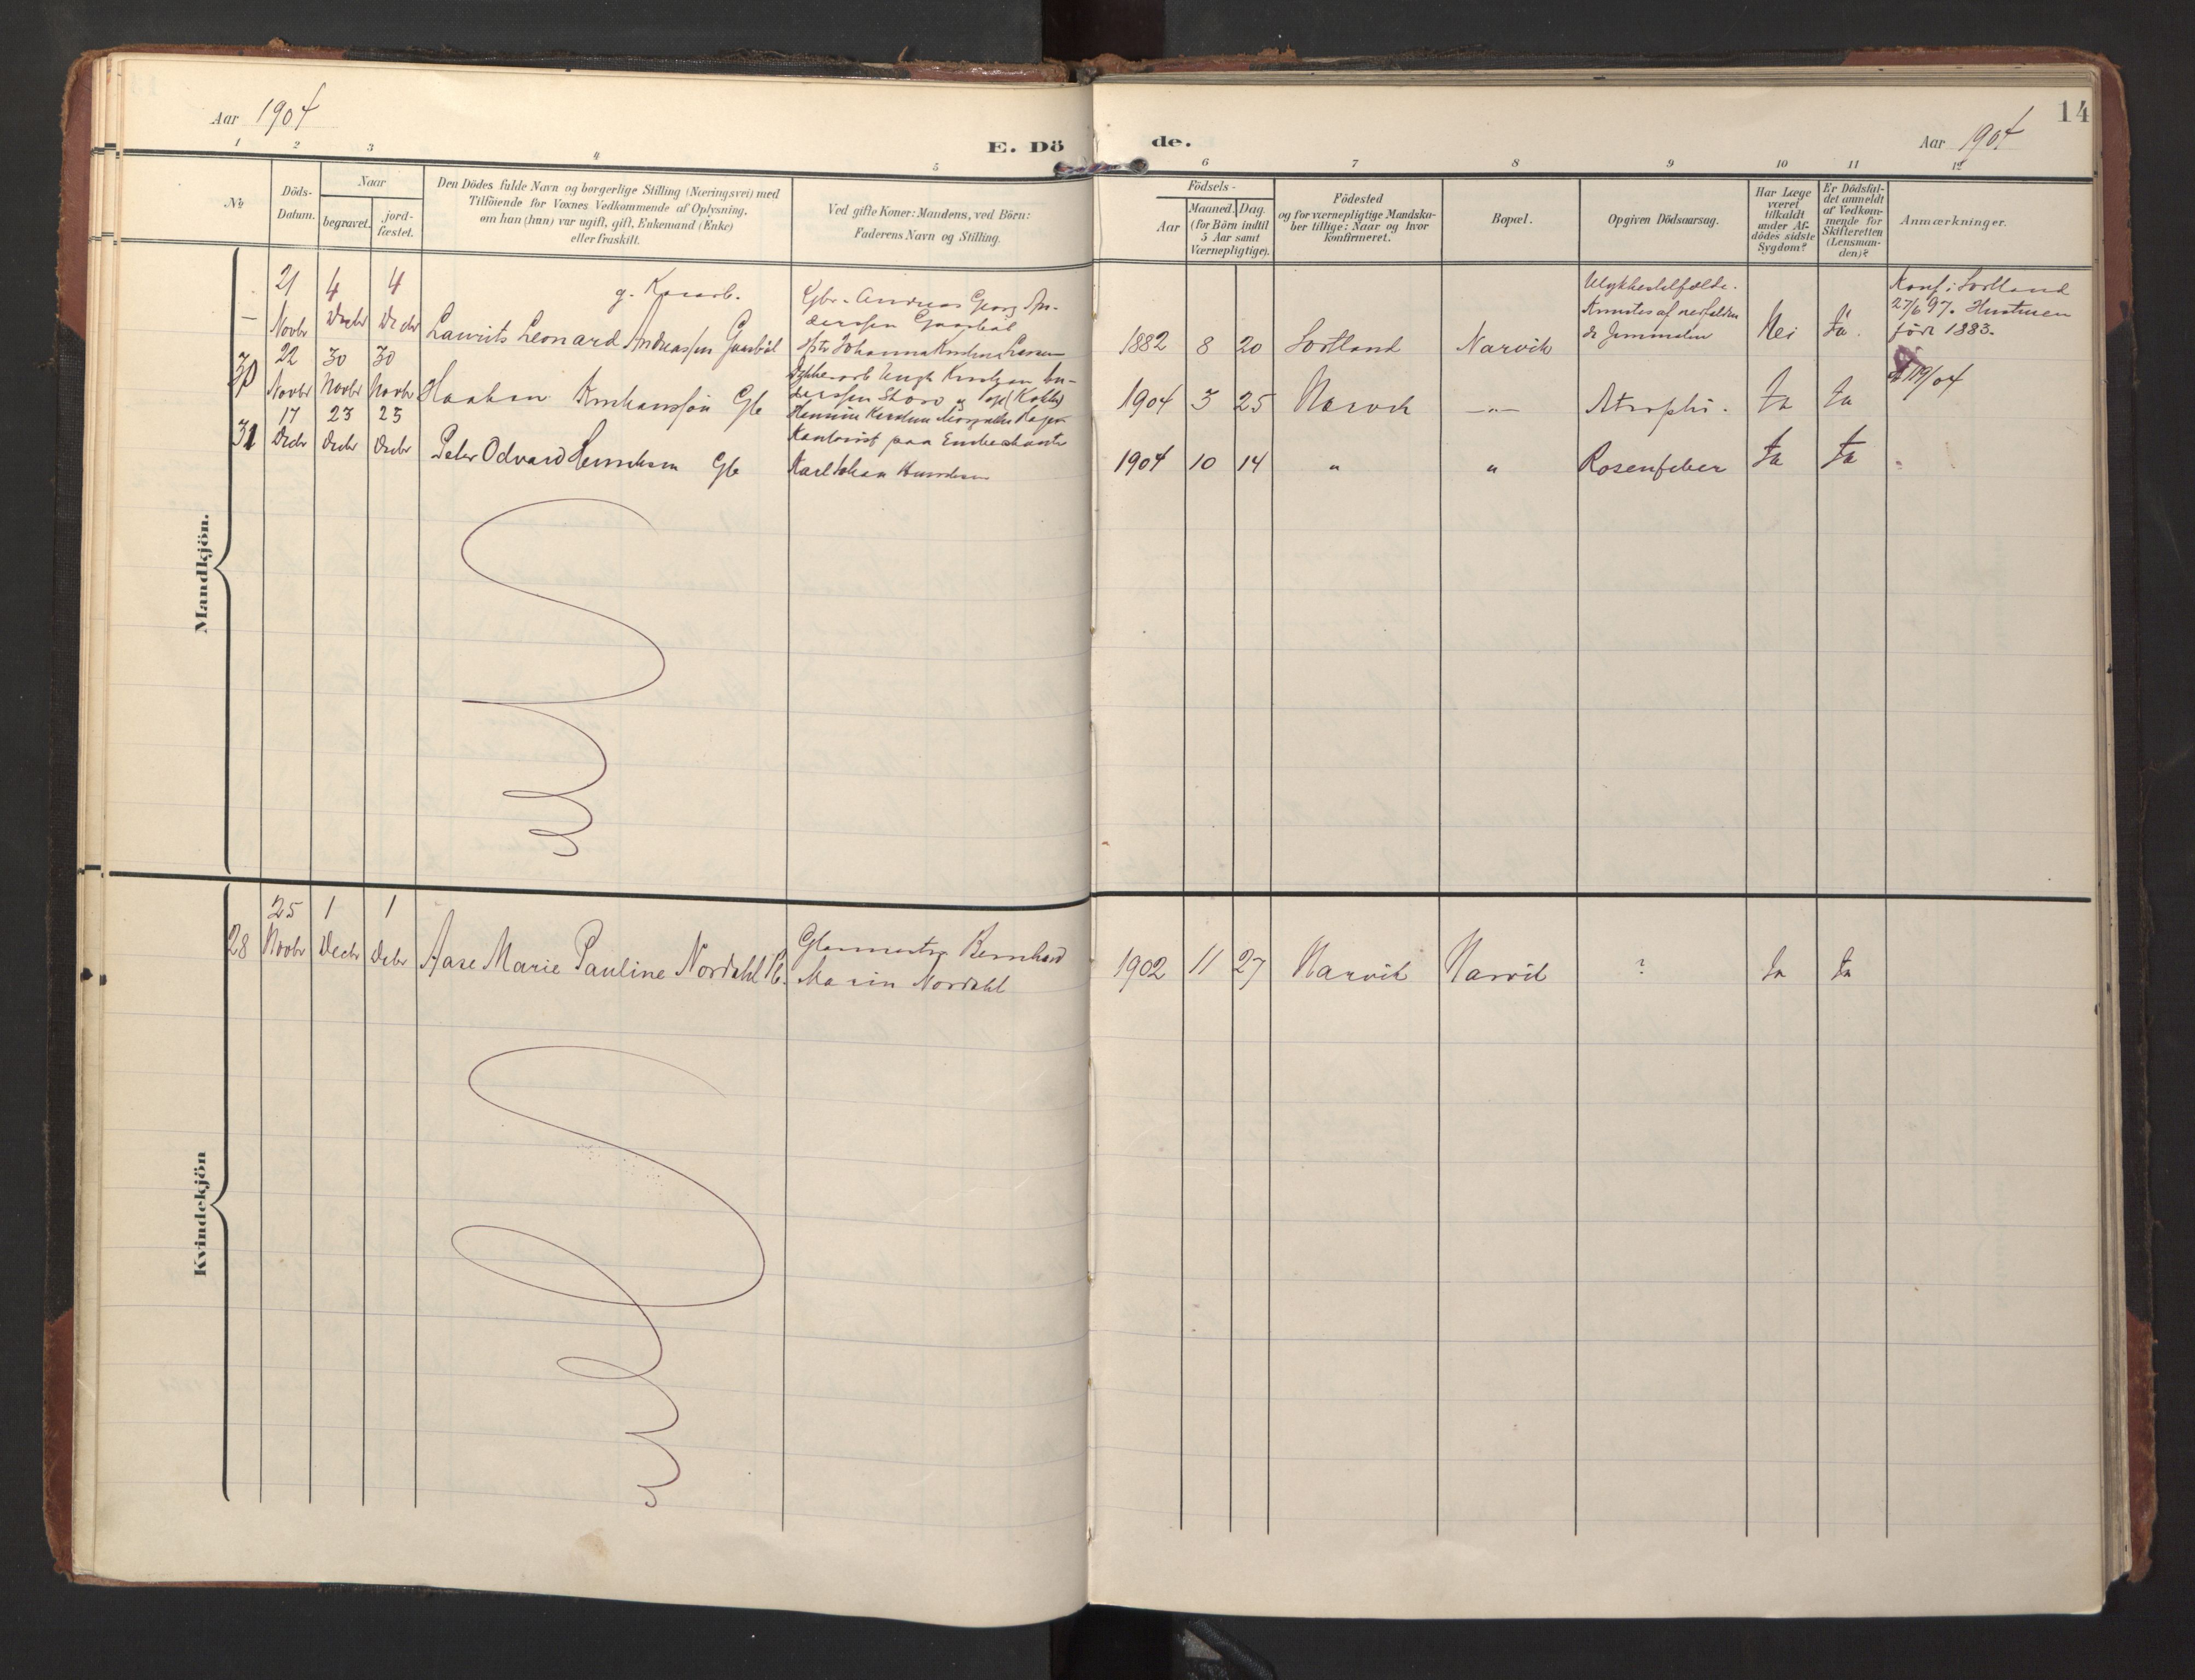 14
Aar 1904
E. Dö
de.
Aar 1904
1 2 3 4 5 6 7 8 9 10 11 12
№
Döds-
Datum.
Naar
begravet.
jord-
fæstet.
Den Dödes fulde Navn og borgerlige Stilling (Næringsvei) med
Tilföiende for Voxnes Vedkommende af Oplysning,
om han (hun) var ugift, gift, Enkemand (Enke)
eller fraskilt.
Ved gifte Koner: Mandens, ved Börn:
Faderens Navn og Stilling.
Födsels-
Aar
Maaned. Dag.
(for Börn indtil
5 Aar samt
Værnepligtige).
Födested
og for værnepligtige Mandska-
ber tillige: Naar og hvor
konfirmeret.
Bopæl.
Opgiven Dödsaarsag.
Har Læge
været
tilkaldt
under Af-
dödes sidste
Sygdom?
Er Dödsfal-
det anmeldt
af Vedkom-
mende for
Skifteretten
(Lensman-
den)?
Anmærkninger.
Mandkjön.
—
21
Novbr
4
Decbr
4
Decbr
g.
Laurits Leonard Andreassen
Gbr. Andreas Georg An-
derssen
Johanna
1882 8 20 Sortland Narvik
Ulykkestilfælde.
af
Nei
Ja.
Konf. i Sortland
27/6 97. Hustruen
född 1883.
30
22
Novbr
30
Novbr
30
Novbr
Haakon Gb
1904 3 25 Narvik —"— Atrophi. Ja Ja
31
17
Decbr
23
Decbr
23
Decbr
Peter Odvard Henriksen Gb
Kontorist paa
Karl Johan Henriksen
1904 10 14 " " Rosenfeber Ja Ja
Kvindekjön
28
25
Novbr
1
Decbr
1
Decbr
Aase Marie Pauline Nordahl
Glarmester Bernhard
Marin Nordahl
1902 11 27 Narvik Narvik ? Ja Ja